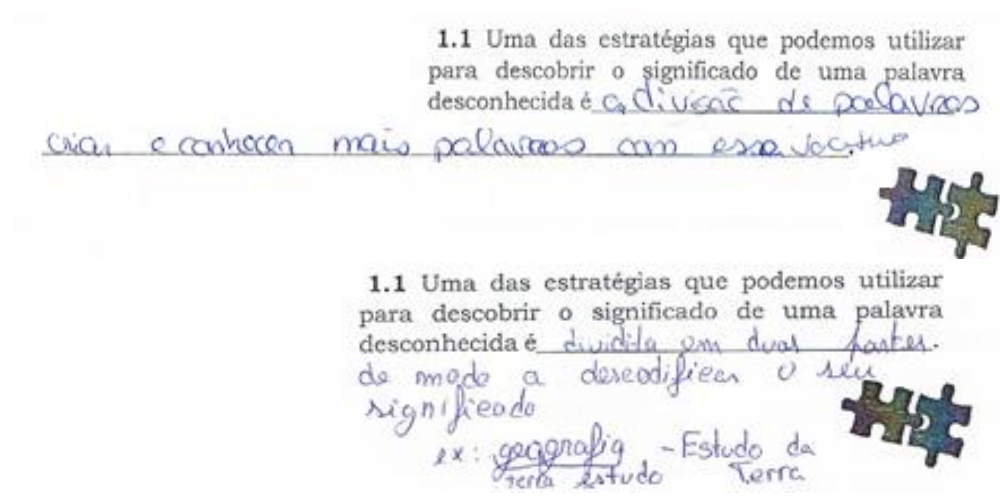 1.1 Uma das estratégias que podemos utilizar
para descobrir o significado de uma palavra
desconhecida é a divisão de palavras
criar e conhecer mais palavras com essa
1.1 Uma das estratégias que podemos utilizar
para descobrir o significado de uma palavra
desconhecida é dividila em duas partes.
de modo a descodificar o seu
significado
ex: geografia - Estudo da
terra estudo Terra